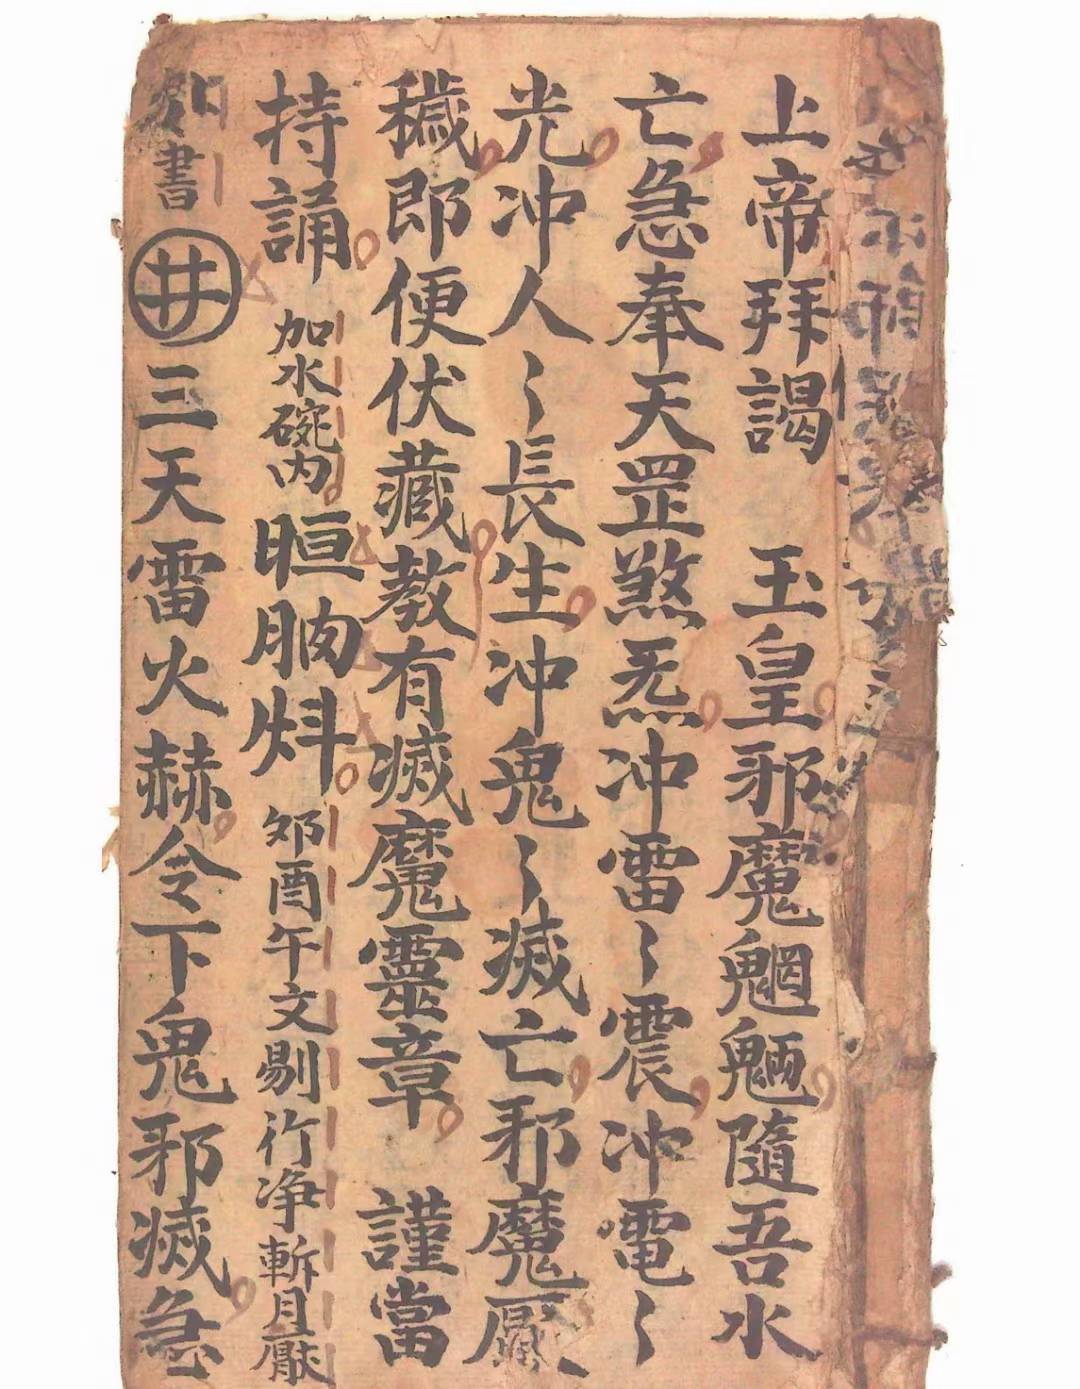 上帝拜謁　玉皇邪魔魍魎隨吾水
亡急奉天罡煞炁冲雷〻震冲電〻
光冲人〻長生冲鬼〻滅亡邪魔
穢即便伏藏教有滅魔靈章　謹當
持誦　加水碗内　晅朐炓　卯酉午文剔行净斬且厭
書　井　三天雷火赫令下鬼邪滅急